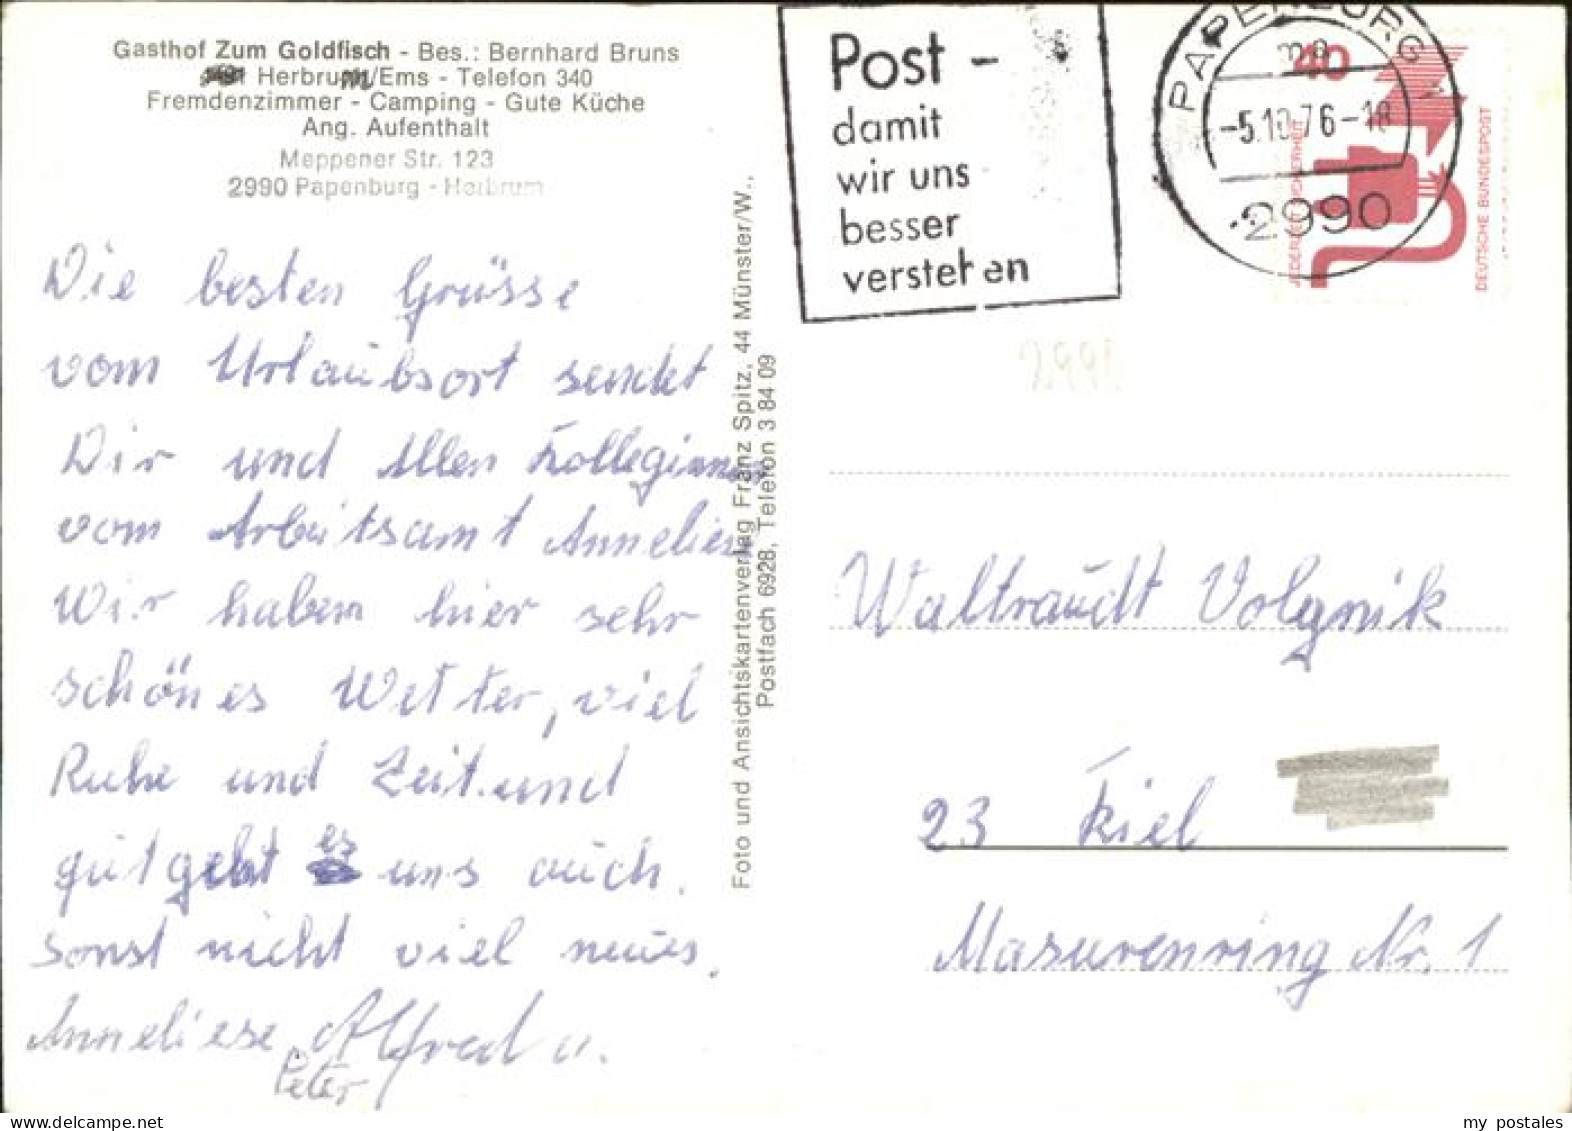 Gasthof Zum Goldfisch - Bes.: Bernhard Bruns
Herbrum/Ems - Telefon 340
Fremdenzimmer - Camping - Gute Küche
Ang. Aufenthalt
Meppener Str. 123
2990 Papenburg - Herbrum
Die besten Grüsse
vom Urlaubsort sendet
Dir und Allen Kolleginnen
vom Arbeitsamt Anneliese
Wir haben hier sehr
schönes Wetter, viel
Ruhe und Zeit und
gut geht es uns auch.
sonst nicht viel neues.
Anneliese, Alfred u.
Peter
Foto und Ansichtskartenverlag Franz Spitz, 44 Münster/W.,
Postfach 6928, Telefon 3 84 09
Post -
damit
wir uns
besser
verstehen
PAPENBURG
ma
-5.10.76-18
2990
40
JEDERZEIT SICHERHEIT
DEUTSCHE BUNDESPOST
Waltraudt Volgnik
23 Kiel
Masurenring Nr. 1
my postales